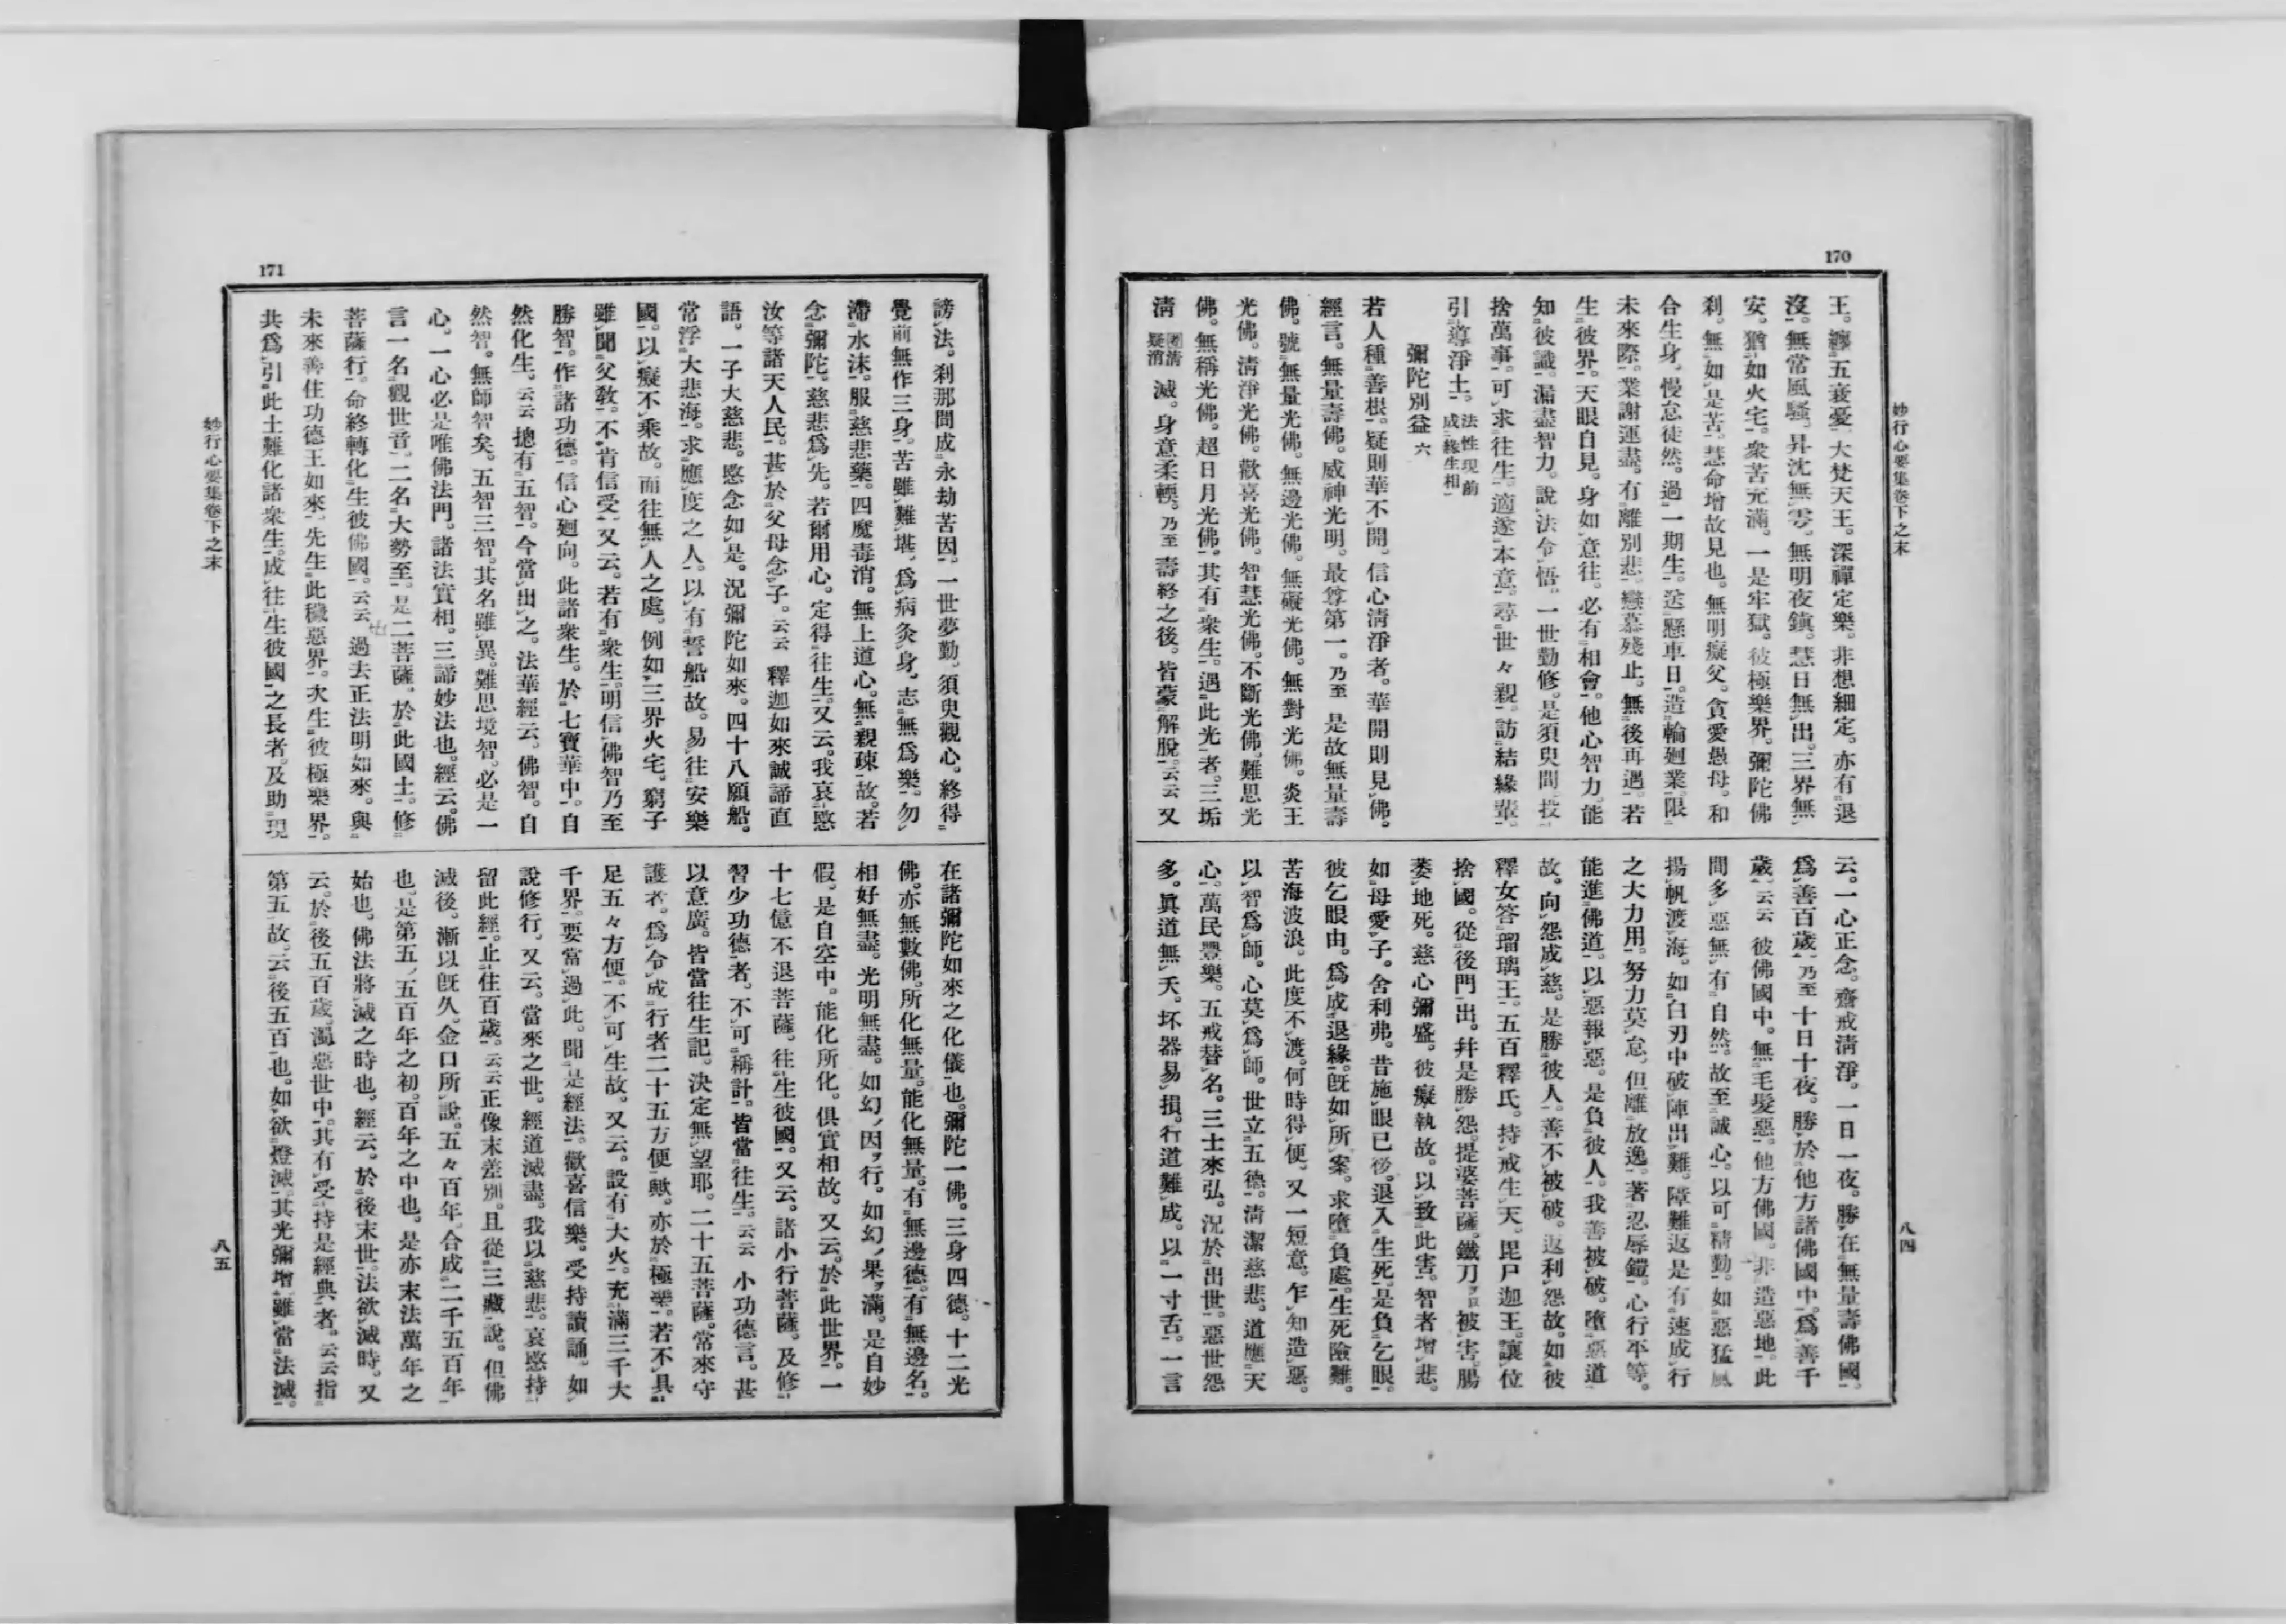 170
妙行心要集卷下之末
八四
王。纏五衰憂。大梵天王。深禪定樂。非想細定。亦有退
沒。無常風騷。昇沈無零。無明夜鎭。慧日無出。三界無
安。猶如火宅。衆苦充滿。一是牢獄。彼極樂界。彌陀佛
刹。無如是苦。慧命增故見也。無明癡父。貪愛愚母。和
合生身。慢怠徒然。過一期生。送懸車日。造輪廻業。限
未來際。業謝運盡。有離別悲。戀慕殘止。無後再遇。若
生彼界。天眼自見。身如意往。必有相會。他心智力。能
知彼識。漏盡智力。說法令悟。一世勤修。是須臾間。投
捨萬事。可求往生。適遂本意。尋世々親。訪結緣輩。
引導淨土。法性現前成緣生相
彌陀別益 六
若人種善根。疑則華不開。信心清淨者。華開則見佛。
經言。無量壽佛。威神光明。最尊第一。乃至 是故無量壽
佛。號無量光佛。無邊光佛。無礙光佛。無對光佛。炎王
光佛。清淨光佛。歡喜光佛。智慧光佛。不斷光佛。難思光
佛。無稱光佛。超日月光佛。其有衆生。遇此光者。三垢
淸 淸疑消 滅。身意柔輭。乃至 壽終之後。皆蒙解脫。云云 又
云。一心正念。齋戒清淨。一日一夜。勝在無量壽佛國。
爲善百歲。乃至 十日十夜。勝於他方諸佛國中。爲善千
歲。云云 彼佛國中。無毛髮惡。他方佛國。非造惡地。此
間多惡無有自然。故至誠心。以可精勤。如惡猛風
揚帆渡海。如白刃中破陣出難。障難返是有速成行
之大力用。努力莫怠。但離放逸。著忍辱鎧。心行平等。
能進佛道。以惡報惡。是負彼人。我善被破。墮惡道
故。向怨成慈。是勝彼人。善不被破。返利怨故。如彼
釋女答瑠璃王。五百釋氏。持戒生天。毘尸迦王。讓位
捨國。從後門出。幷是勝怨。提婆菩薩。鐵刀被害。腸
萎地死。慈心彌盛。彼癡執故。以致此害。智者增悲。
如母愛子。舍利弗。昔施眼已後。退入生死。是負乞眼。
彼乞眼由。爲成退緣。旣如所案。求墮負處。生死險難。
苦海波浪。此度不渡。何時得便。又一短意。乍知造惡。
以智爲師。心莫爲師。世立五德。淸潔慈悲。道應天
心。萬民豐樂。五戒替名。三士來弘。況於出世。惡世怨
多。眞道無夭。坏器易損。行道難成。以一寸舌。一言
171
妙行心要集卷下之末
八五
謗法。刹那間成永劫苦因。一世夢勤。須臾觀心。終得
覺前無作三身。苦雖難堪。爲病灸身。志無爲樂。勿
滯水沫。服慈悲藥。四魔毒消。無上道心。無親疎故。若
念彌陀。慈悲爲先。若爾用心。定得往生。又云。我哀愍
汝等諸天人民。甚於父母念子。云云 釋迦如來誠諦直
語。一子大慈悲。愍念如是。況彌陀如來。四十八願船。
常浮大悲海。求應度之人。以有誓船故。易往安樂
國。以癡不乘故。而往無人之處。例如三界火宅。窮子
雖聞父敎。不肯信受。又云。若有衆生。明信佛智乃至
勝智。作諸功德。信心廻向。此諸衆生。於七寶華中。自
然化生。云云 摠有五智。今當出之。法華經云。佛智。自
然智。無師智矣。五智三智。其名雖異。難思境智。必是一
心。一心必是唯佛法門。諸法實相。三諦妙法也。經云。佛
言一名觀世音。二名大勢至。是二菩薩。於此國土。修
菩薩行。命終轉化生彼佛國。云云 過去正法明如來。與
未來善住功德王如來。先生此穢惡界。次生彼極樂界。
共爲引此土難化諸衆生。成往生彼國之長者。及助現
在諸彌陀如來之化儀也。彌陀一佛。三身四德。十二光
佛。亦無數佛。所化無量。能化無量。有無邊德。有無邊名。
相好無盡。光明無盡。如幻因行。如幻果滿。是自妙
假。是自空中。能化所化。俱實相故。又云。於此世界。一
十七億不退菩薩。往生彼國。又云。諸小行菩薩。及修
習少功德者。不可稱計。皆當往生。云云 小功德言。甚
以意廣。皆當往生記。決定無望耶。二十五菩薩。常來守
護者。爲令成行者二十五方便歟。亦於極樂。若不具
足五々方便。不可生故。又云。設有大火。充滿三千大
千界。要當過此。聞是經法。歡喜信樂。受持讀誦。如
說修行。又云。當來之世。經道滅盡。我以慈悲。哀愍持
留此經。止住百歲。云云正像末差別。且從三藏說。但佛
滅後。漸以旣久。金口所說。五々百年。合成二千五百年
也。是第五五百年之初。百年之中也。是亦末法萬年之
始也。佛法將滅之時也。經云。於後末世。法欲滅時。又
云。於後五百歲。濁惡世中。其有受持是經典者。云云指
第五故。云後五百也。如欲燈滅。其光彌增。雖當法滅。